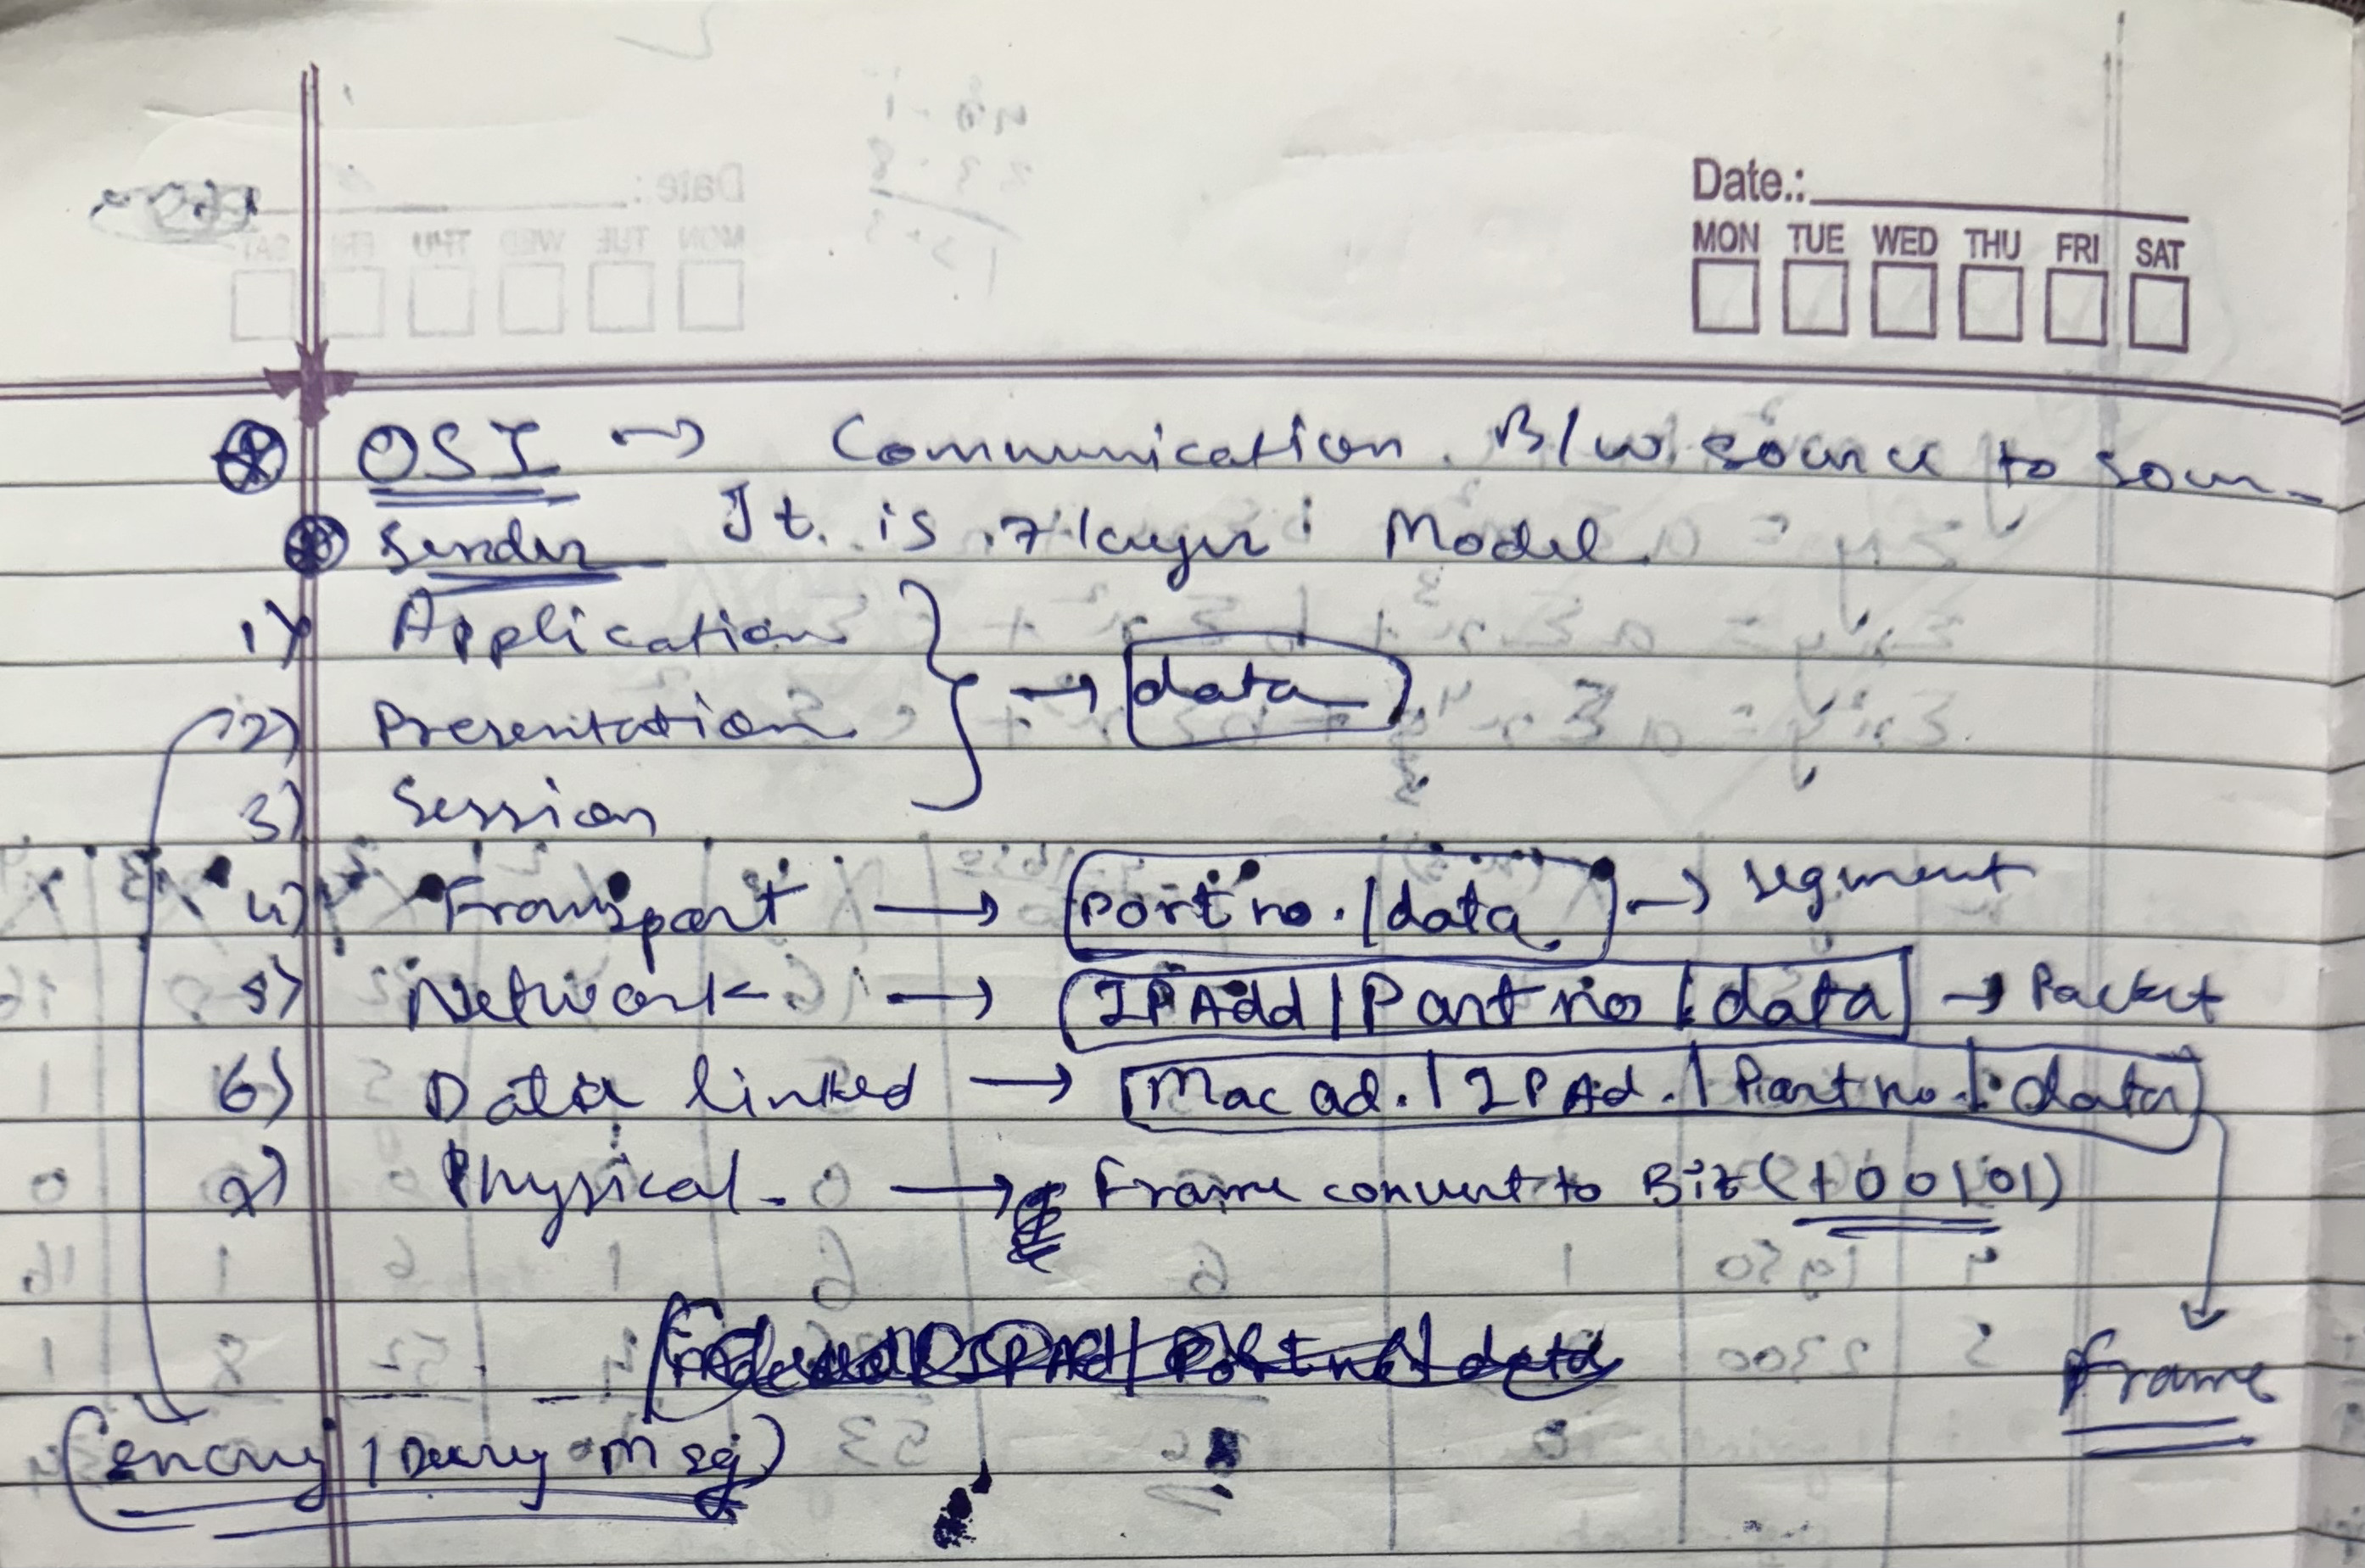 Date.:
MON TUE WED THU FRI SAT
OSI → Communication. B/w source to sour-
Sender It. is 7 layer Model.
1) Application
→ data
2) Presentation
3) Session
4) Transport → Port no. | data → segment
5) Network → IP Add | Port no | data → Packet
6) Data linked → Mac ad. | IP Ad. | Port no. | data
7) Physical. → Frame convert to Bit (100101)
Frame
(encry / Decry Msg)